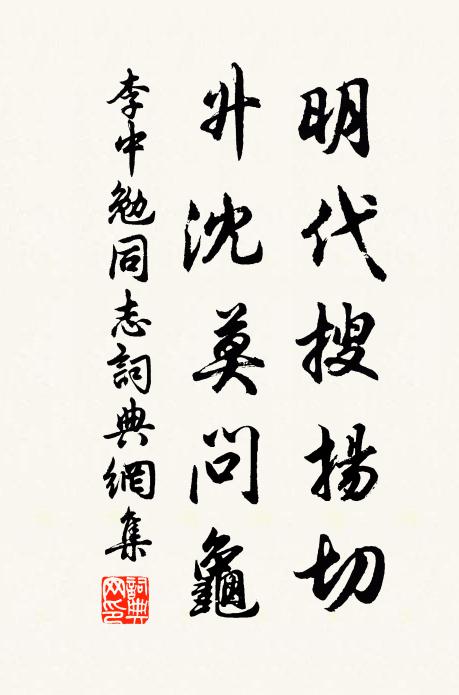 明代搜揚切
升沈莫問龜
李中勉同志詞典網集
詞典網印